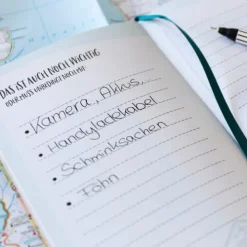 DAS IST AUCH NOCH WICHTIG
ODER MUSS UNBEDINGT NOCH MIT:
• Kamera, Akkus,
• Handyladekabel
• Schminksachen
• Föhn